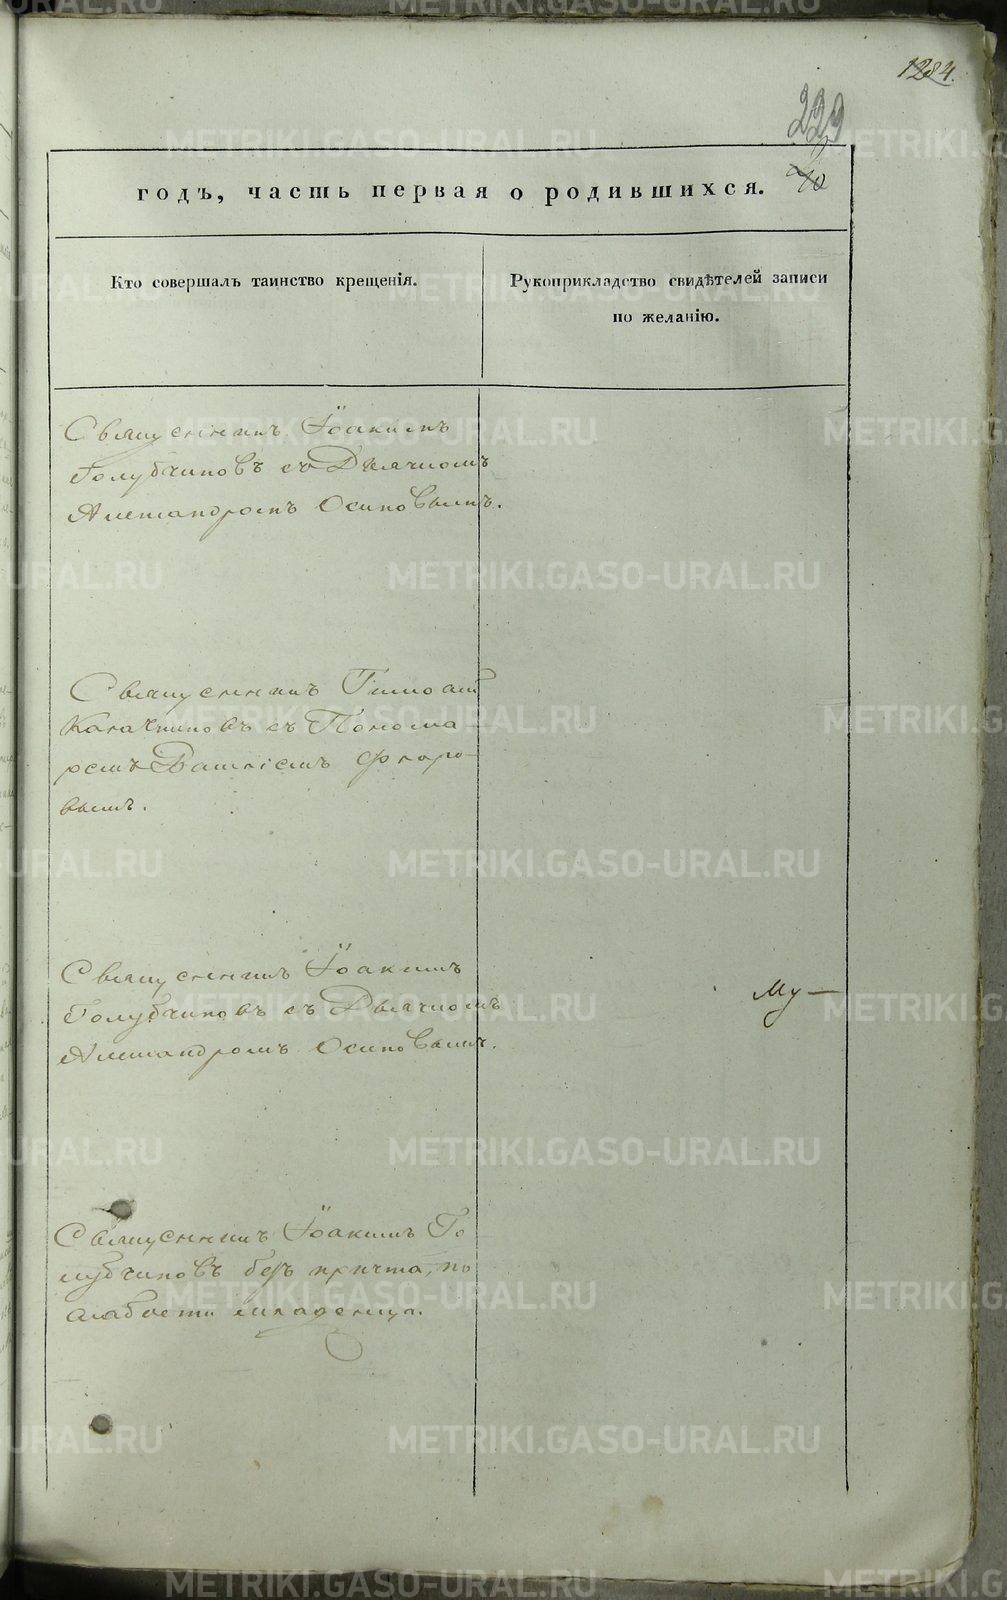 1284.
229
10
годъ, часть первая о родившихся.
Кто совершалъ таинство крещенія.
Рукоприкладство свидѣтелей записи
по желанію.
Священникъ Іоакимъ
Голубчиковъ съ Дьячкомъ
Александромъ Осиповымъ.
Священникъ Тимоѳей
Калачниковъ съ Понома
ремъ Фларо-
вымъ.
Священникъ Іоакимъ
Голубчиковъ съ Дьячкомъ
Александромъ Осиповымъ.
Му-
Священникъ Іоакимъ Го
лубчиковъ безъ причта, по
слабости младенца.
METRIKI.GASO-URAL.RU